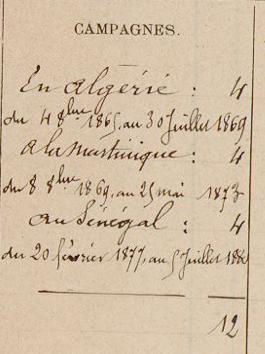 CAMPAGNES.
En Algérie : 4
du 4 8bre 1865, au 30 Juillet 1869
à la Martinique : 4
du 8 8bre 1869, au 25 mai 1873
au Sénégal : 4
du 20 février 1877, au 5 Juillet
12